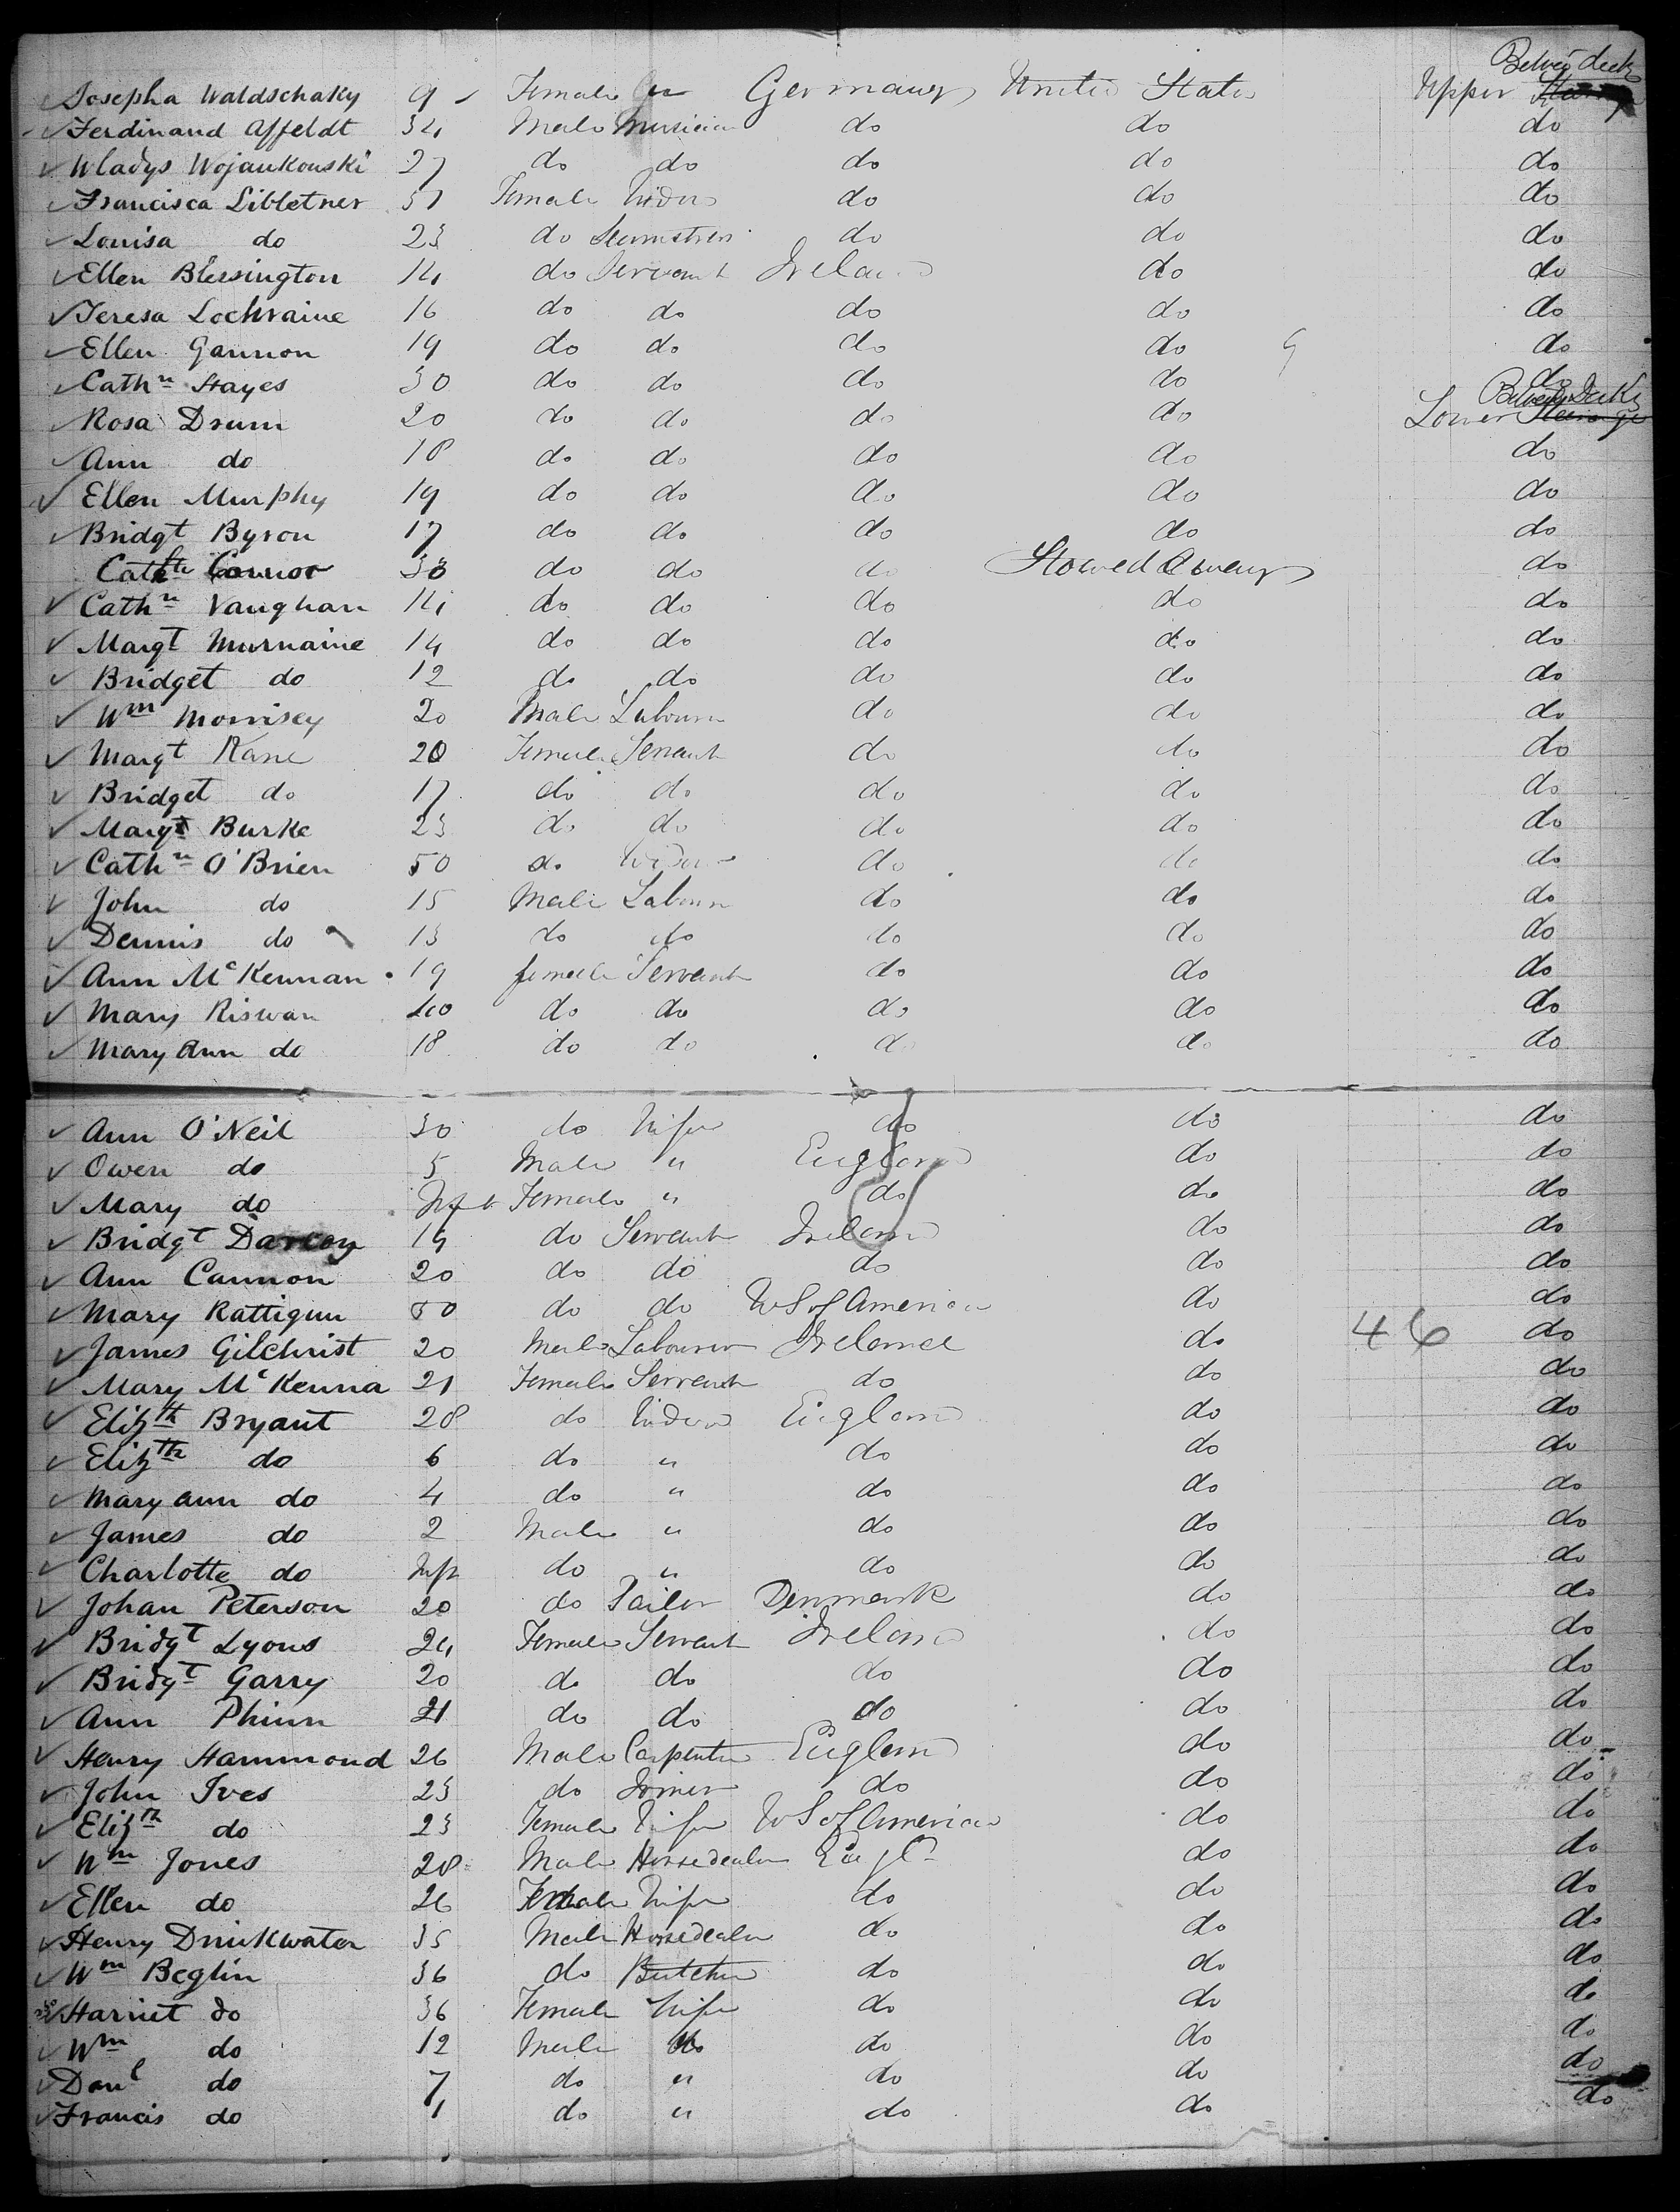 Betwen deck
Josepha Waldschaky 9 Female " Germany United States Upper Steerage
Ferdinand Affeldt 34 Male Musician do do do
Wladys Wojankowski 27 do do do do do
Francisca Libletner 51 Female Widow do do do
Louisa do 23 do Seamstress do do do
Ellen Blessington 14 do Servant Ireland do do
Teresa Lochraine 16 do do do do do
Ellen Gannon 19 do do do do 9 do
Cathn Hayes 30 do do do do do
Between Decks
Rosa Drum 20 do do do do Lower Steerage
Ann do 18 do do do do do
Ellen Murphy 19 do do do do do
Bridgt Byron 17 do do do do do
Cathe Connor 30 do do do Stowed Away do
Cathn Vaughan 14 do do do do do
Margt Murnaine 14 do do do do do
Bridget do 12 do do do do do
Wm Morrisey 20 Male Labourer do do do
Margt Kane 20 Female Servant do do do
Bridget do 17 do do do do do
Margt Burke 23 do do do do do
Cathn O'Brien 50 do Widow do do do
John do 15 Male Labourer do do do
Dennis do 13 do do do do do
Ann McKennan 19 female Servant do do do
Mary Riswan 40 do do do do do
Mary Ann do 18 do do do do do
Ann O'Neil 30 do Wife do do do
Owen do 5 Male " England do do
Mary do Inft Female " do do do
Bridgt Darcey 19 do Servant Ireland do do
Ann Cannon 20 do do do do do
Mary Rattigun 50 do do U S of America do do
James Gilchrist 20 Male Labourer Ireland do 46 do
Mary McKenna 21 Female Servant do do do
Elizth Bryant 28 do Widow England do do
Elizth do 6 do " do do do
Mary ann do 4 do " do do do
James do 2 Male " do do do
Charlotte do Inft do " do do do
Johan Peterson 20 do Tailor Denmark do do
Bridgt Lyons 24 Female Servant Ireland do do
Bridgt Garry 20 do do do do do
Ann Phinn 21 do do do do do
Henry Hammond 26 Male Carpenter England do do
John Ives 23 do Joiner do do do
Elizth do 23 Female Wife U S of America do do
Wm Jones 28 Male Horsedealer Engld do do
Ellen do 26 Female Wife do do do
Henry Drinkwater 35 Male Horsedealer do do do
Wm Beglin 36 do Butcher do do do
Harriet do 36 Female Wife do do do
Wm do 12 Male do do do
Danl do 7 do " do do do
Francis do 1 do " do do do